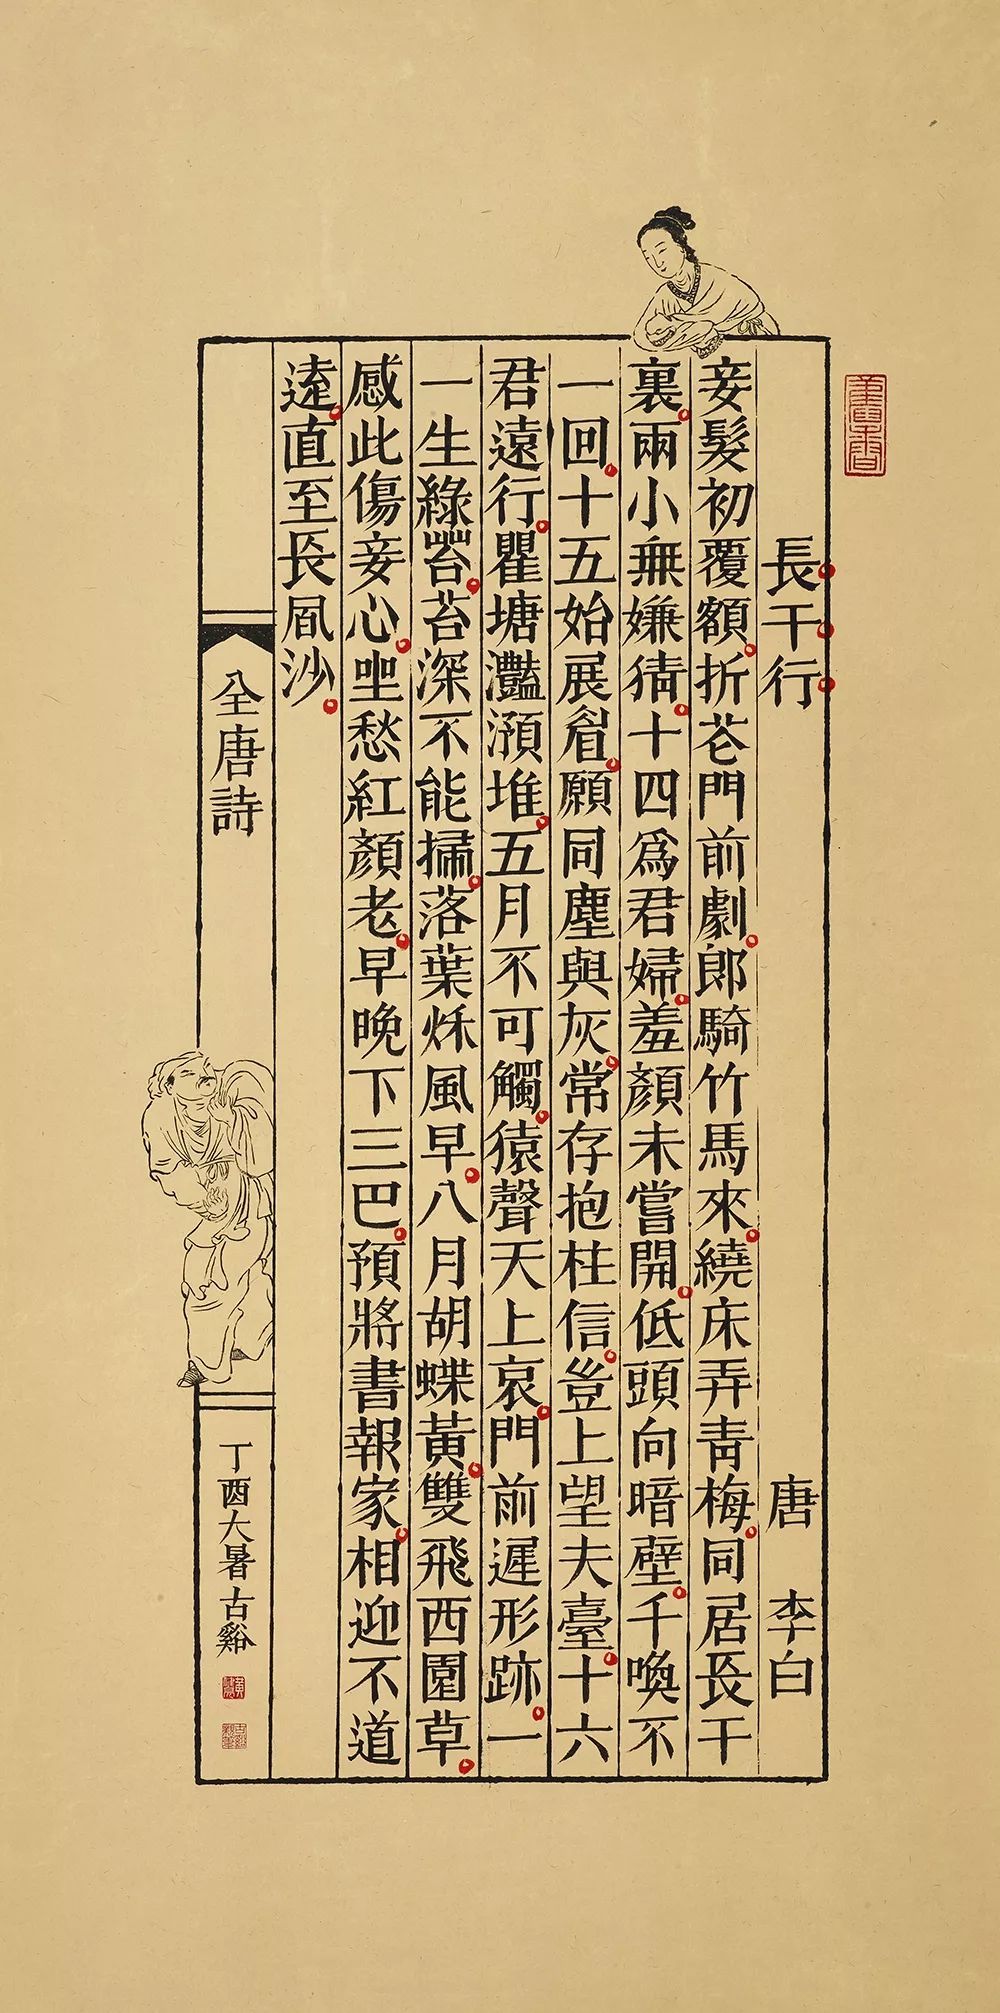 長干行 唐 李白
妾髮初覆額折花門前劇郎騎竹馬來繞床弄青梅同居長干
裏兩小無嫌猜十四為君婦羞顏未嘗開低頭向暗壁千喚不
一回十五始展眉願同塵與灰常存抱柱信豈上望夫臺十六
君遠行瞿塘灩澦堆五月不可觸猿聲天上哀門前遲形跡一
一生綠苔苔深不能掃落葉秌風早八月胡蝶黃雙飛西園草
感此傷妾心坐愁紅顏老早晚下三巴預將書報家相迎不道
遠直至長風沙
全唐詩
丁酉大暑古谿